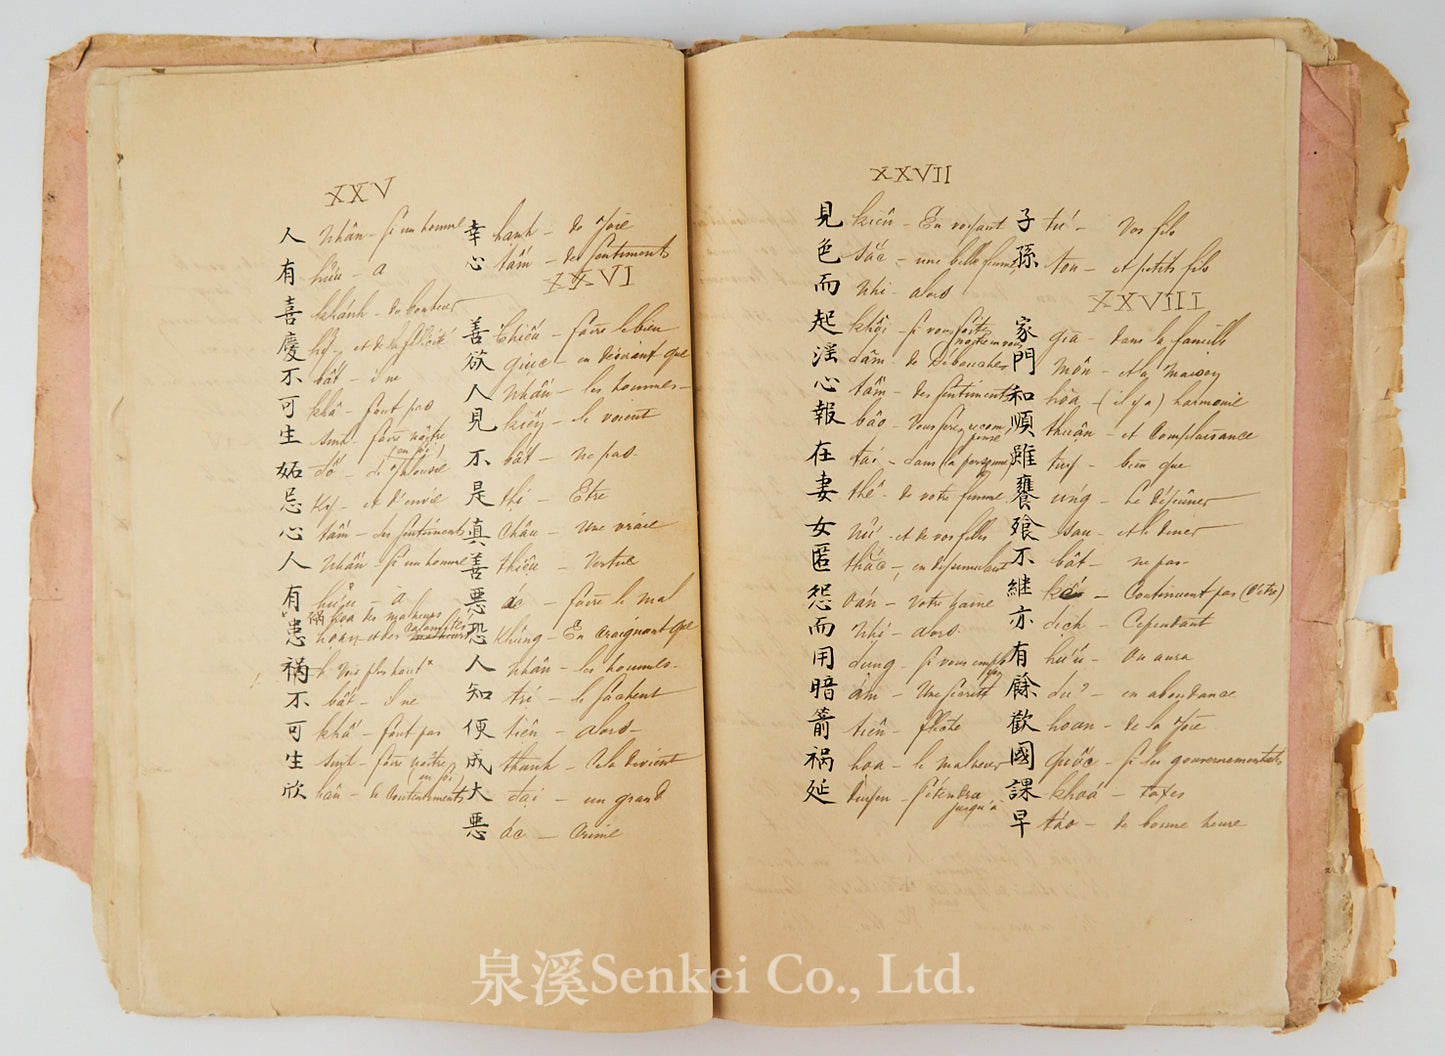 XXV
人 Nhân - Si un homme
有 hữu - a
喜 khánh - du bonheur
慶 hỷ - et de la félicité
不 bất - il ne
可 khả - faut pas
生 sinh - faire naître (en soi)
妬 đố - de jalousie
忌 Kỵ - et d'envie
心 tâm - des sentiments
人 Nhân - Si un homme
有 hữu - a
患 禍 hoa des malheurs
hoạn - et des calamités
禍 Vois plus haut
不 bất - il ne
可 khả - faut pas
生 sinh - faire naître (en soi)
欣 hân - de contentements
幸 hạnh - de joie
心 tâm - des sentiments
XXVI
善 thiện - faire le bien
欲 giục - en désirant que
人 Nhân - les hommes -
見 kiến - le voient
不 bất - ne pas
是 thị - Etre
真 Chân - une vraie
善 thiện - Vertu
惡 ác - faire le mal
恐 Khủng - En craignant que
人 nhân - les hommes -
知 tri - le sachent
便 tiện - alors -
成 thành - Cela devient
大 đại - un grand
惡 ác - Crime
XXVII
見 kiến - En voyant
色 sắc - une belle femme
而 Nhi - alors
起 khởi - si vous faites naître en vous
淫 dâm - de Débauches
心 tâm - des sentiments
報 báo - Vous serez recompensé
在 tại - dans la personne
妻 thê - de votre femme
女 nữ - et de vos filles
匿 thắc - en dissimulant
怨 oán - Votre haine
而 Nhi - alors
用 dụng - si vous employez
暗 ám - Une secrète
箭 tiễn - flèche
禍 hoa - le malheur
延 diyên - s'étendra jusqu'à
子 tử - Vos fils
孫 ton - et petits fils
XXVIII
家 gia - dans la famille
門 môn - et la maison
和 hòa - (il y a) harmonie
順 thuận - et Complaisance
雖 tuy - bien que
饔 ung - le déjeûner
飧 san - et le diner
不 bất - ne pas
継 kế - Continuent pas (d'être)
亦 dịch - Cependant
有 hữu - On aura
餘 dư - en abondance
歡 hoan - de la joie
國 quốc - si les gouvernementales
課 khoá - taxes
早 tảo - de bonne heure
泉溪Senkei Co., Ltd.